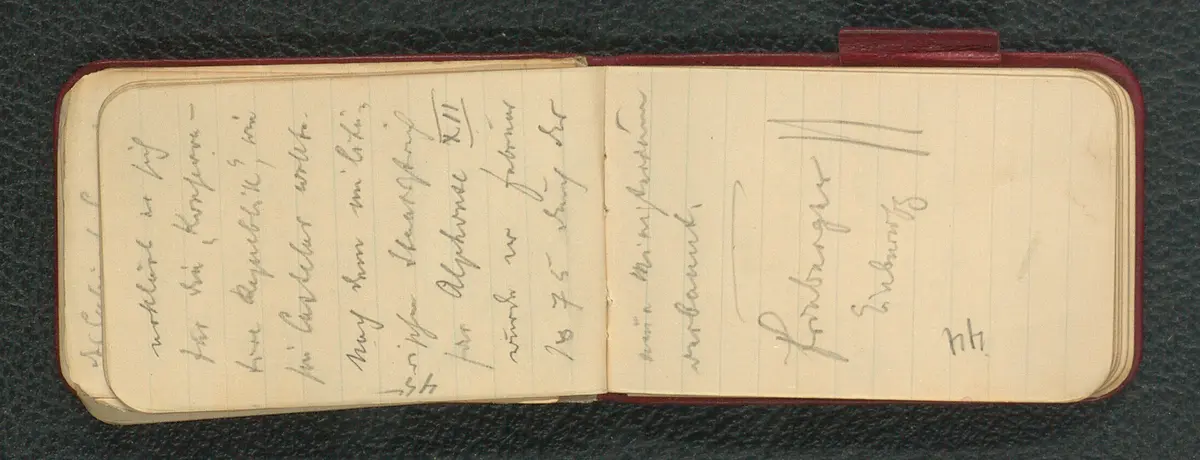 erklärt er sich
für die „Konserva-
tive Republik“, wie
sie Castelar wollte.
Nach dem militä-
rischen Staatsstreich
für Alphonse XII
wurde er Februar
1875 durch das
neue Ministerium
verbannt.
Einbarortz